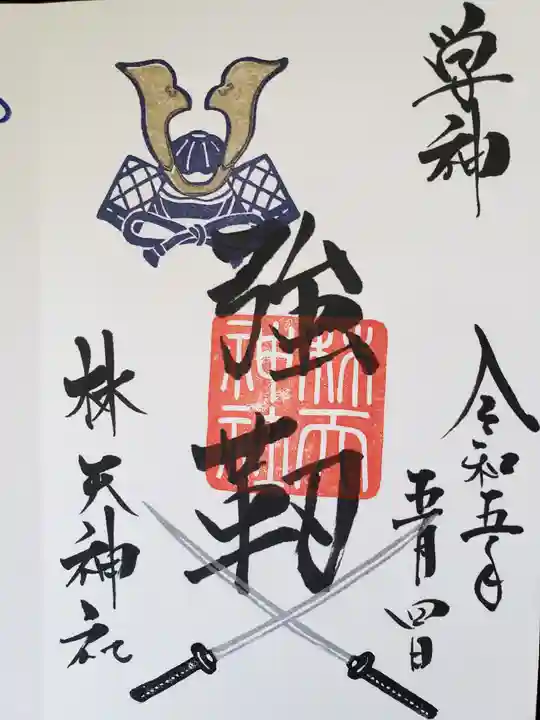 尊神
令和五年
五月四日
強靭
林天神社
林天神社